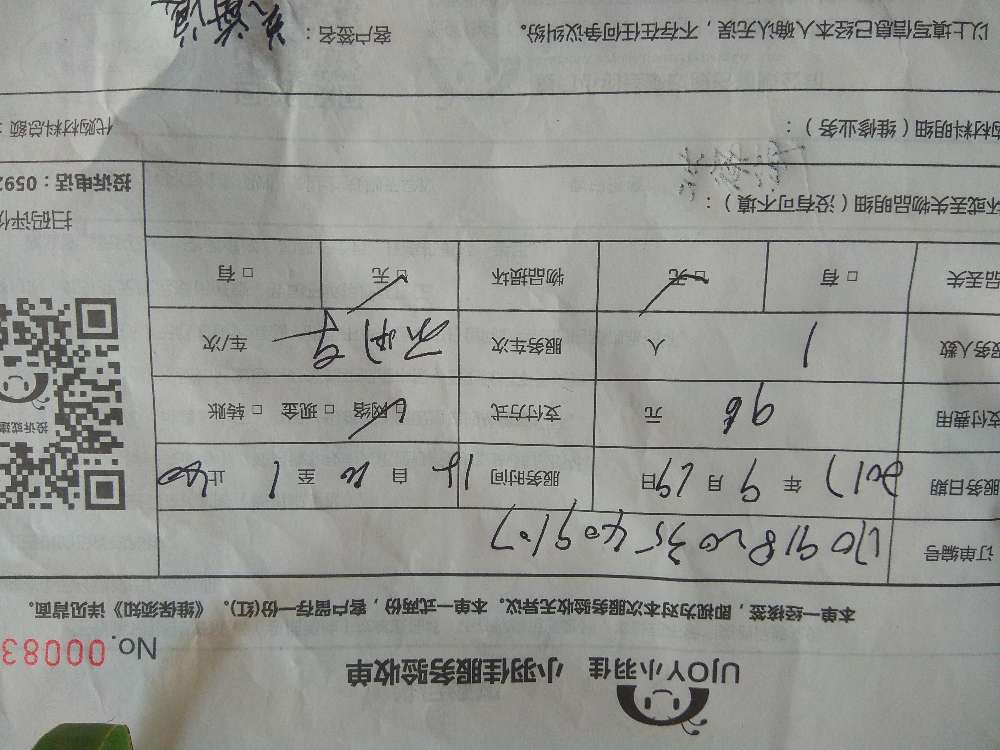 UJOY小羽佳 小羽佳服务验收单
No.00083
本单一经接签，即视为对本次服务验收无异议。本单一式两份，客户留存一份(红)。《维保须知》详见背面。
订单编号
服务日期 2017 年 9 月 19 日 服务时间 自 至 1 止
支付费用 96 元 支付方式 □网络 □现金 □转账
投诉或建
服务人数 1 人 服务车次 车/次
品丢失 □有 □无 物品损坏 □无 □有
扫码评价
坏或丢失物品明细（没有可不填）：
投诉电话：0592
购材料明细（维修业务）： 代购材料总额：
以上填写信息已经本人确认无误，不存在任何争议纠纷。 客户签名：